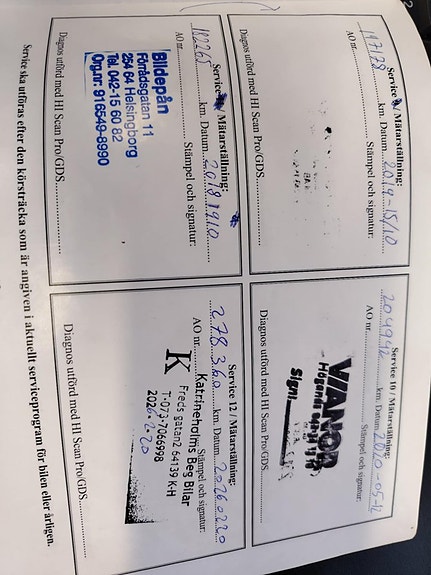 Service / Mätarställning:
197178 km. Datum 2019-15/10
AO nr. Stämpel och signatur:
Diagnos utförd med HI Scan Pro/GDS.
Service 10 / Mätarställning:
204942 km. Datum 2020-05-12
AO nr. Stämpel och signatur:
VIANOR
Signi
Diagnos utförd med HI Scan Pro/GDS.
Service / Mätarställning:
182265 km. Datum
AO nr. Stämpel och signatur:
Bildepån
Förrådsgatan 11
254 64 Helsingborg
Tel. 042-15 60 82
Org.nr: 916549-8990
Diagnos utförd med HI Scan Pro/GDS.
Service 12 / Mätarställning:
278360 km. Datum 20260220
AO nr. Stämpel och signatur:
Katrineholms Beg Bilar
K
Fredsgatan2 64139 K-H
T-073-7066998
2026.2.20
Diagnos utförd med HI Scan Pro/GDS.
Service ska utföras efter den körsträcka som är angiven i aktuellt serviceprogram för bilen eller årligen.